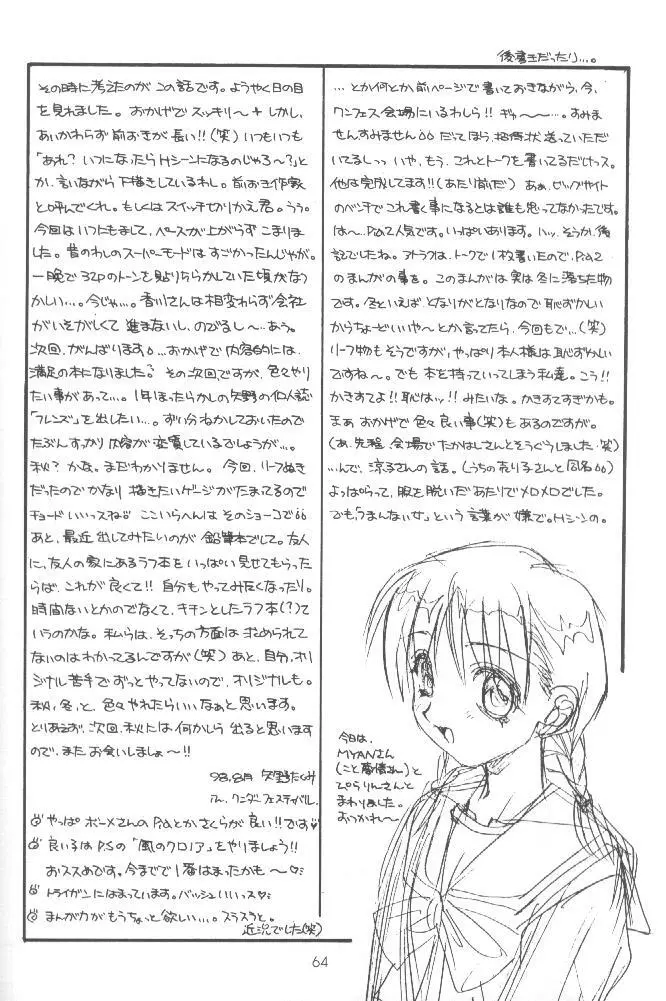 後書きだったり…。
…とか何とか、前ページで書いておきながら、今、
ワンフェス会場にいるわしら!! ギャ〜〜…。すみま
せんすみません〇〇 だってほう、招待状送っていただ
いてるしっっ いや、もう、これとトークを書いてるだけっス。
他は完成してます!!(あたり前だ) あぁ、ビッグサイト
のベンチでこれ書く事になるとは誰も思ってなかったです。
は〜、P.a.2人気です。いっぱいあります。ハッ、そうか、後
記でしたね。アトラフは、トークで1枚書いたので、P.a.2
のまんがの事を。このまんがは実は冬に落ちた物
です。冬といえばとなりがとなりなので恥ずかしい
からちょーどいいや〜とか言ってたら、今回もで…(笑)
リーフ物もそうですが、やっぱり本人様は恥ずかしい
ですね〜。でも本を持っていってしまう私達。こう!!
かきすてよ!! 恥はッ!! みたいな。かきすてすぎかも。
まぁ おかげで色々良い事(笑)もあるのですが。
(あ、先程、会場でたかはしさんとそうぐうしました・笑)
…んで、涼子さんの話。(うちの売り子さんと同名〇〇)
よっぱらって、服を脱いだあたりでメロメロでした。
でも「つまんない女」という言葉が嫌で。Hシーンの。
その時に考えたのがこの話です。ようやく日の目
を見れました。おかげでスッキリ〜+ しかし、
あいかわらず前おきが長い!!(笑) いつもいつも
「あれ? いつになったらHシーンになるのじゃろ〜?」と
か、言いながら下描きしているわし。前おき作家
と呼んでくれ。もしくはスイッチきりかえ君。うう。
今回はいつにもまして、ペースが上がらずこまりま
した。昔のわしのスーパーモードはすごかったんじゃが。
一晩で32Pのトーンを貼りちらかしていた頃がなつ
かしい…。今じゃ…。香川さんは相変わらず会社
がいそがしくて進まないし、のびるし〜…あぅ。
次回、がんばります。…おかげで内容的には、
満足の本になりました? その次回ですが、色々やり
たい事があって…。1年ほったらかしの矢野の個人誌
「フレンズ」を出したい…。ずい分ねかしておいたので
たぶんすっかり内容が変質しているでしょうが…。
秋? かな。まだわかりません。今回、リーフぬき
だったのでかなり描きたいゲージがたまってるので
チョードいいっスね ここいらへんはそのショーコで〇〇
あと、最近出してみたいのが鉛筆本でして。友人
に、友人の家にあるラフ本をいっぱい見せてもらった
らば、これが良くて!! 自分もやってみたくなったり。
時間ないとかのでなくて、キチンとしたラフ本(?)て
いうのかな。私らは、そっちの方面は求められて
ないのはわかってるんですが(笑) あと、自分、オリ
ジナル苦手でずっとやってないので、オリジナルも。
秋、冬、と、色々やれたらいいなぁと思います。
とりあえず、次回、秋には何かしら出ると思います
ので、またお会いしましょ〜!!
98.8月 矢野たくみ
Am.ワンダーフェスティバル.
やっぱボーメさんのP.aとかさくらが良い!!です♡
良いろはP.Sの「風のクロノア」をやりましょう!!
おススめです。今までで1番はまったかも〜♡
トライガンにはまっています。バッシュいいっス♡
まんが力がもうちょっと欲しい…。スラスラと。
近況でした(笑)
今日は、
MYANさん
(こと 夢情さん)と
ぴらりんさんと
まわりました。
おつかれ〜
64